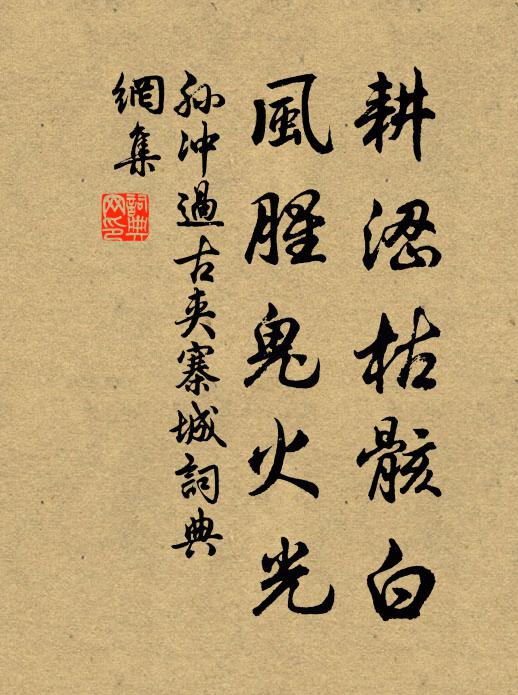 耕澀枯骸白
風腥鬼火光
孫冲過古夾寨城詞典
網集
詞典
网印